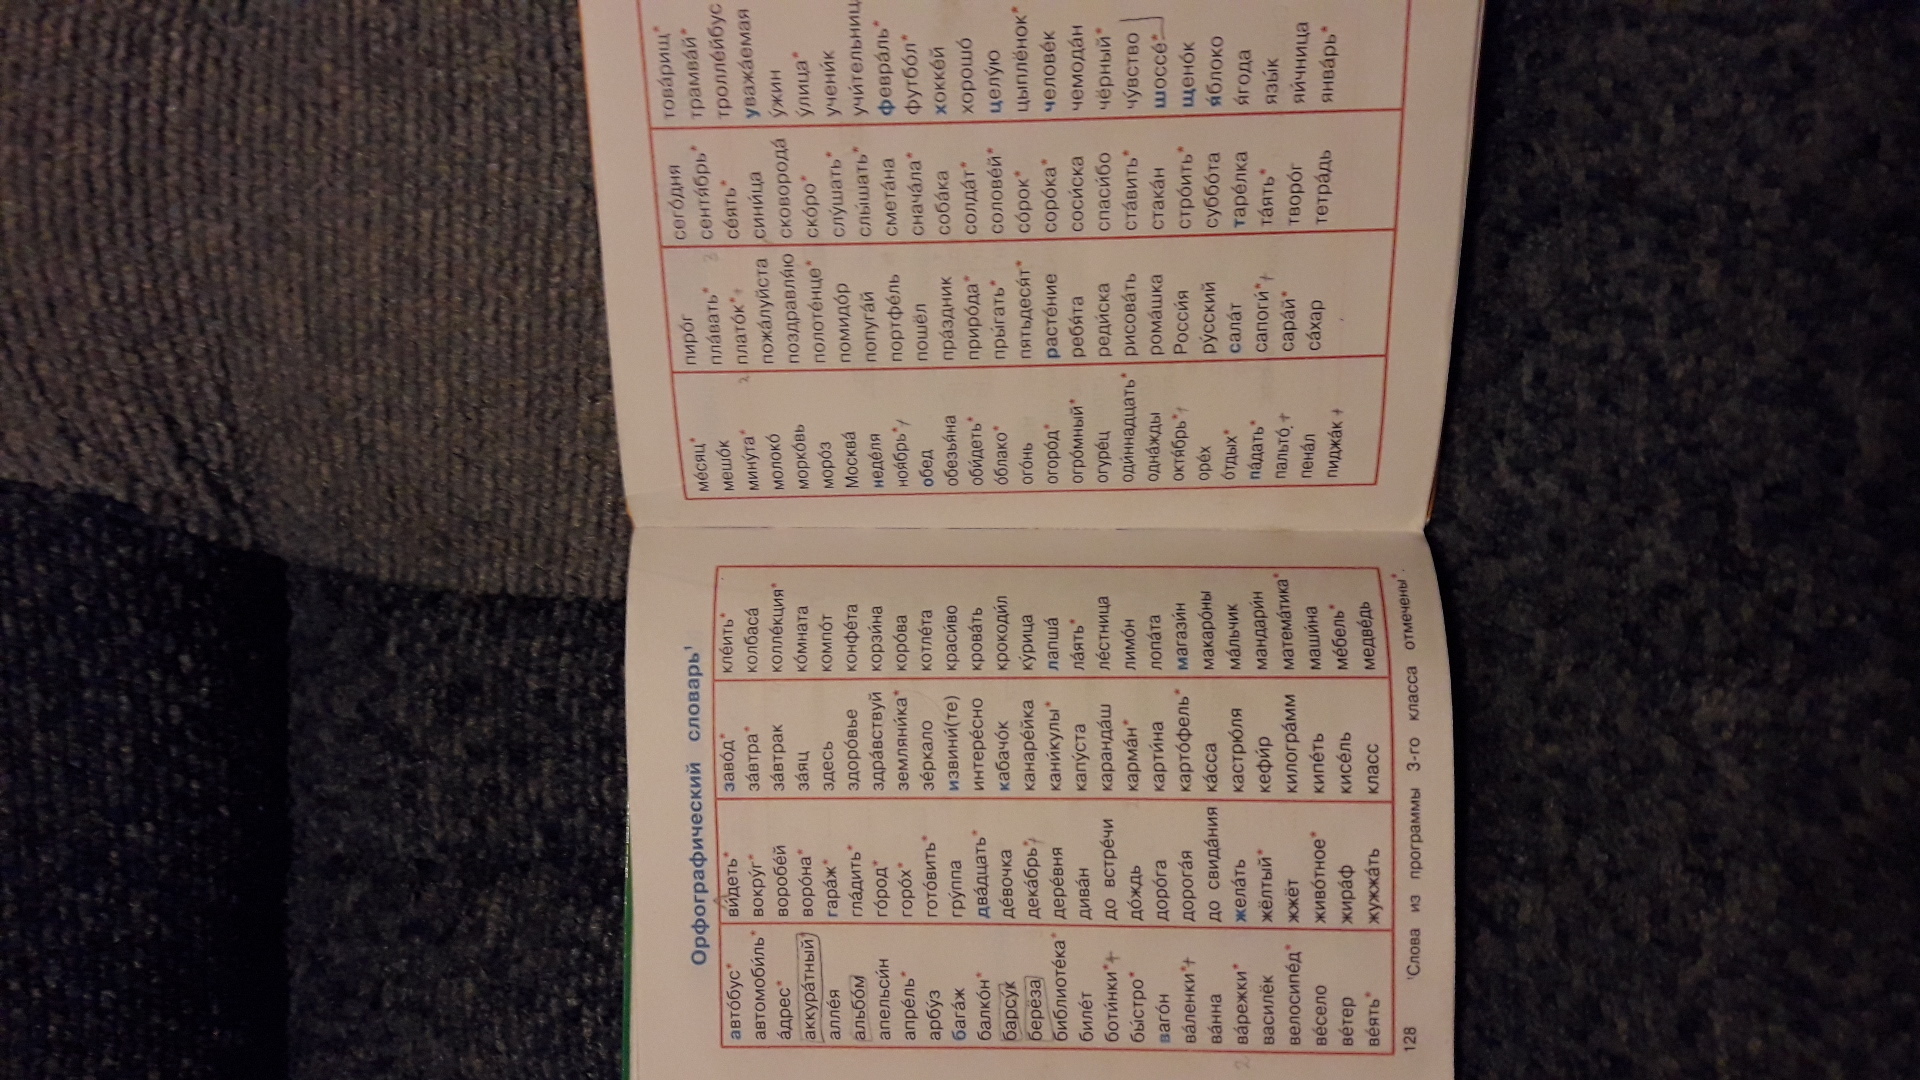 Орфографический словарь¹
авто́бус*
автомоби́ль*
а́дрес*
аккура́тный
алле́я
альбо́м
апельси́н
апре́ль*
арбу́з
бага́ж
балко́н*
барсу́к
берёза
библиоте́ка*
биле́т
боти́нки*+
бы́стро*
ваго́н
ва́ленки*+
ва́нна
2 ва́режки*
василёк
велосипе́д*
ве́село
ве́тер
ве́ять*
ви́деть*
вокру́г*
воробе́й
воро́на*
гара́ж*
гла́дить*
го́род*
горо́х*
гото́вить*
гру́ппа
два́дцать*
де́вочка
дека́брь*
дере́вня
дива́н
до встре́чи
до́ждь
доро́га
дорога́я
до свида́ния
жела́ть
жёлтый*
жжёт
живо́тное*
жира́ф
жужжа́ть
заво́д*
за́втра*
за́втрак
за́яц
здесь
здоро́вье
здра́вствуй
земляни́ка*
зе́ркало
извини́(те)
интере́сно
кабачо́к
канаре́йка
кани́кулы*
капу́ста
каранда́ш
карма́н*
карти́на
карто́фель*
ка́сса
кастрю́ля
кефи́р
килогра́мм
кипе́ть
кисе́ль
класс
кле́ить*
колбаса́
колле́кция*
ко́мната
компо́т
конфе́та
корзи́на
коро́ва
котле́та
краси́во
крова́ть
крокоди́л
ку́рица
лапша́
ла́ять*
ле́стница
лимо́н
лопа́та
магази́н
макаро́ны
ма́льчик
мандари́н
матема́тика*
маши́на
ме́бель*
медве́дь
128
¹Слова из программы 3-го класса отмечены*.
ме́сяц*
мешо́к
мину́та*
молоко́
морко́вь
моро́з
Москва́
неде́ля
ноя́брь*
обе́д
обезья́на
оби́деть*
о́блако*
ого́нь
огоро́д*
огро́мный*
огуре́ц
оди́ннадцать*
одна́жды
октя́брь*
оре́х
о́тдых*
па́дать*
пальто́ +
пена́л
пиджа́к +
пиро́г
пла́вать*
2 плато́к*
пожа́луйста
поздравля́ю
полоте́нце*
помидо́р
попуга́й
портфе́ль
пошёл
пра́здник
приро́да*
пры́гать*
пятьдеся́т*
расте́ние
ребя́та
реди́ска
рисова́ть
рома́шка
Росси́я
ру́сский
сала́т
сапоги́*+
сара́й*
са́хар
сего́дня
сентя́брь*
се́ять*
сини́ца
сковорода́
ско́ро*
слу́шать*
слы́шать*
смета́на
снача́ла*
соба́ка
солда́т*
солове́й*
со́рок*
соро́ка*
соси́ска
спаси́бо
ста́вить*
стака́н
стро́ить*
суббо́та
таре́лка
та́ять*
творо́г
тетра́дь
това́рищ*
трамва́й*
тролле́йбус
уважа́емая
у́жин
у́лица*
учени́к
учи́тельница
февра́ль*
футбо́л*
хокке́й
хорошо́
целу́ю
цыплёнок*
челове́к
чемода́н
чёрный*
чу́вство
шоссе́*
щено́к
я́блоко
я́года
язы́к
яи́чница
янва́рь*